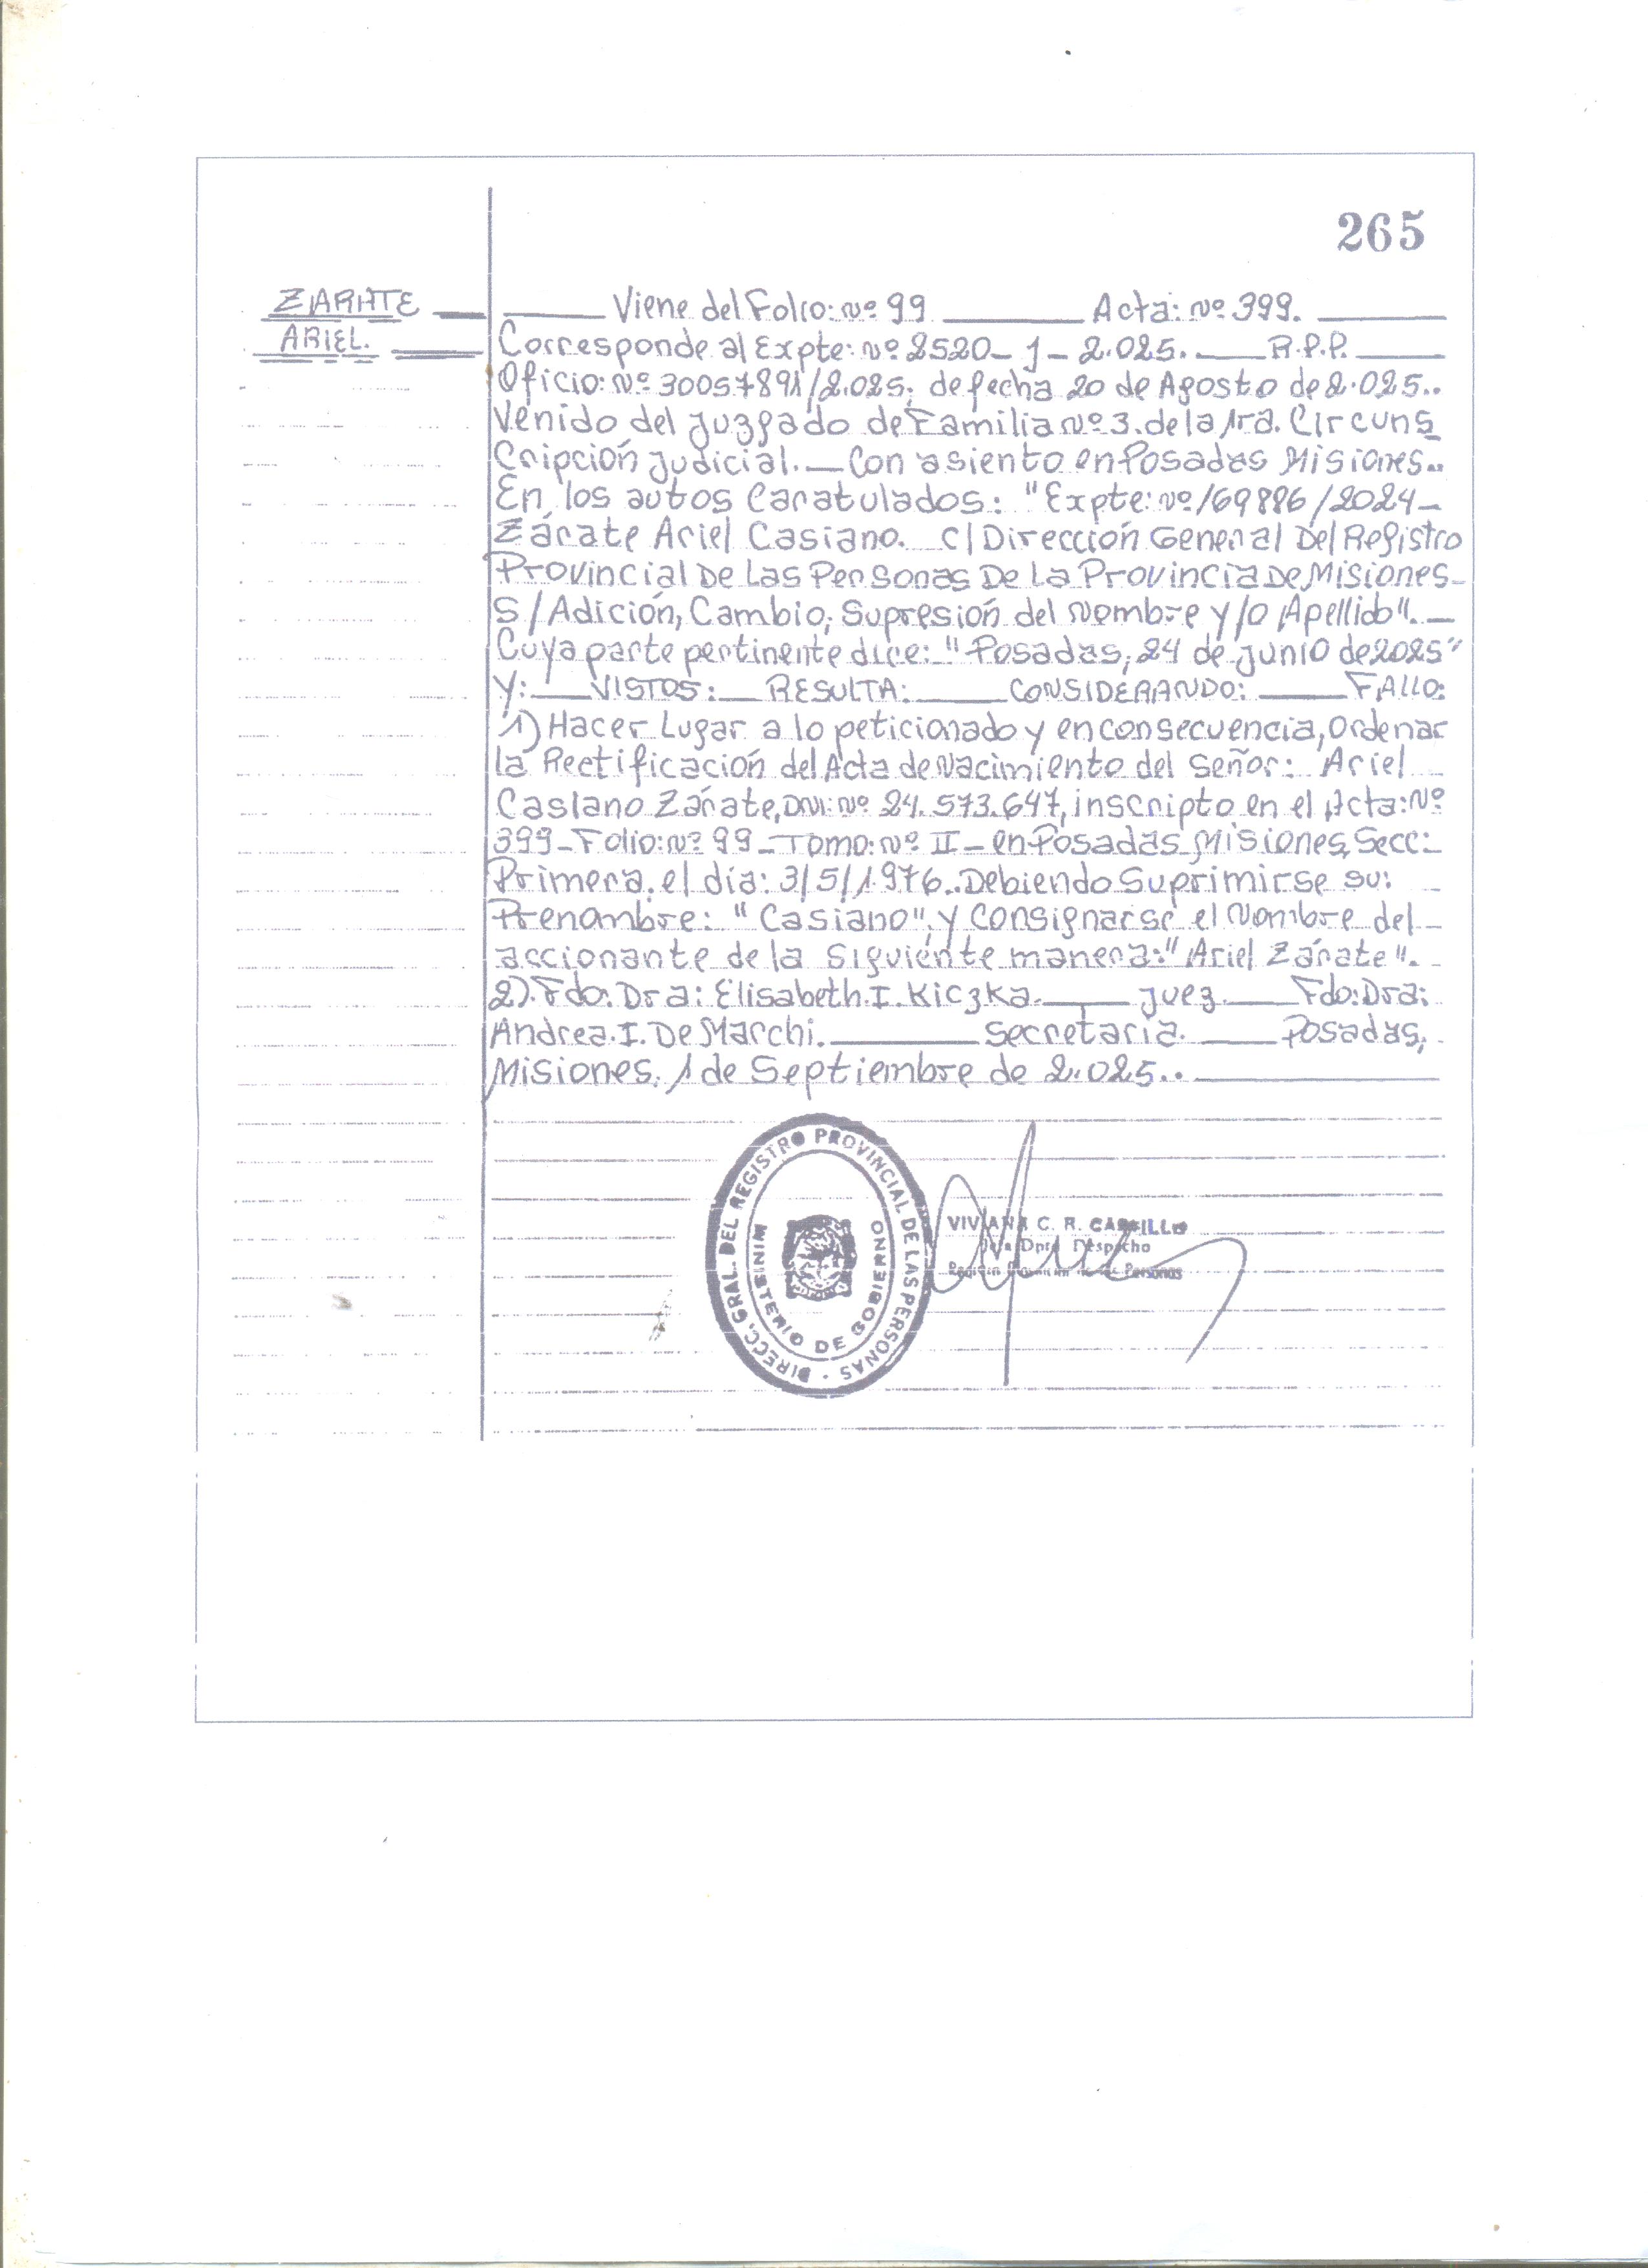 265
ZARATE
ARIEL.
Viene del Folio: Nº 99 Acta: Nº 399.
Corresponde al Expte: Nº 2520-J-2.025. R.P.P.
Oficio: Nº 30057891/2.025; de fecha 20 de Agosto de 2.025..
Venido del Juzgado de Familia Nº 3. de la 1ra. Circuns
Cripción Judicial.— Con asiento en Posadas Misiones..
En los autos Caratulados: "Expte: Nº/69886/2024-
Zárate Ariel Casiano. C/Dirección General Del Registro
Provincial De Las Personas De La Provincia De Misiones-
S/Adición, Cambio, Supresión del Nombre y/o Apellido".—
Cuya parte pertinente dice: "Posadas, 24 de Junio de 2025"
Y: VISTOS: RESULTA: CONSIDERANDO: FALLO:
1) Hacer Lugar a lo peticionado y en consecuencia, Ordenar
la Rectificación del Acta de Nacimiento del Señor: Ariel
Casiano Zárate, DNI: Nº 24.573.647, inscripto en el Acta: Nº
399-Folio: Nº 99-Tomo: Nº II-en Posadas Misiones, Secc:
Primera. el día: 3/5/1.976.. Debiendo Suprimirse su:
Prenombre: "Casiano", y Consignarse el Nombre del
accionante de la siguiente manera: "Ariel Zárate".
2). Fdo: Dra: Elisabeth. I. Kiczka. Juez. Fdo: Dra:
Andrea. I. De Marchi. Secretaria. Posadas,
Misiones, 1 de Septiembre de 2.025..
DIRECC. GRAL. DEL REGISTRO PROVINCIAL DE LAS PERSONAS
MINISTERIO DE GOBIERNO
VIVIANA C. R. CASTILLO
Jefa Dpto Despacho
Registro Provincial de las Personas